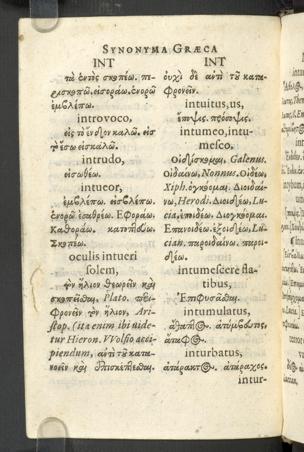 SYNONYMA GRÆCA
INT
τὰ ἐντὸς σκοπέω. πε-
ρισκοπῶ. εἰσοράω. ἐνορῶ
ἐμβλέπω.
introvoco,
εἰς τὸ ἔνδον καλῶ. εἰσ
ἔσω εἰσκαλῶ.
intrudo,
εἰσωθέω.
intueor,
ἐμβλέπω. εἰσβλέπω.
ἐνορῶ ἐσαθρέω. Εφοράω.
Καθοράω, κατοπτεύω.
Σκοπέω.
oculis intueri
solem,
τὸν ἥλιον θεωρεῖν καὶ
σκοπεῖσθαι, Plato. περι-
φρονεῖν τὸν ἥλιον, Ari-
stop. (ita enim ibi uide-
tur Hieron. VVolfio acci-
piendum, ἀντὶ τοῦ κατα-
νοεῖν καὶ ἐπισκέπτεσθαι,
INT
οὐχὶ δὲ ἀντὶ τοῦ κατα-
φρονεῖν.
intuitus, us,
ἔποψις. πρόσοψις.
intumeo, intu-
mesco,
Οἰδίσκομαι, Galenus.
Οἰδαίνω, Nonnus. Οἰδέω,
Xiph. ὀγκόομαι. Διοιδαί-
νω, Herodi. Διοιδέω, Lu-
cia, ἐποιδέω. Διογκόομαι.
Επανοιδέω. ἐξοιδέω, Lu-
cian. παροιδαίνω. παροι-
δέω.
intumescere fla-
tibus,
Ἐμφυσᾶσθαι.
intumulatus,
ἄταφος. ἀτύμβευτος.
inturbatus,
ἀτάρακτος. ἀτάραχος.
intur-